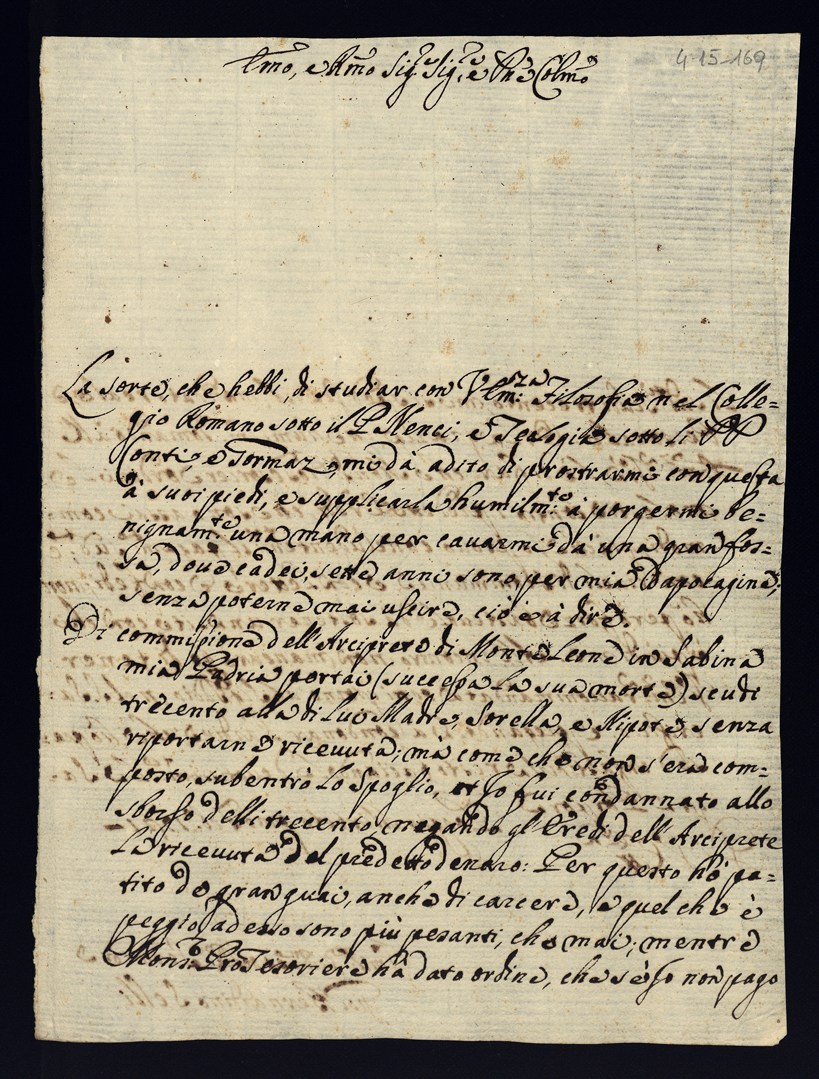 Emo, e Rmo Sig.re Sig.re, e Pne Colmo
4-15-169
La sorte, che hebbi, di studiar con V. Em.za Filosofia nel Colle=
gio Romano sotto il P. Nenci, e Teologia sotto li PP
Conti, e Tormaz, mi dà adito di prostrarmi con questa
à suoi piedi, e supplicarla humilm.te à porgermi be=
nignam.te una mano per cavarmi dà una gran fos=
sa, dove cadei, sette anni sono per mia dapocagine,
senza poterne mai uscire, ciò è à dire.
Di commissione dell'Arciprete di Monte Leone in Sabina
mia Padria portai (successa la sua morte) scudi
trecento alla di lui Madre, Sorella, e Nipote, senza
riportarne ricevuta; mà come che non s'era com=
posto, subentrò lo Spoglio, et Io fui condannato allo
sborso delli trecento, negando gl'Eredi dell'Arciprete
la ricevuta del predetto denaro: Per questo hò pa=
tito de gran guai, anche di carcere, e quel che è
peggio, adesso sono più pesanti, che mai; mentre
Mons.r ProTesoriere hà dato ordine, che s'è Io non pago